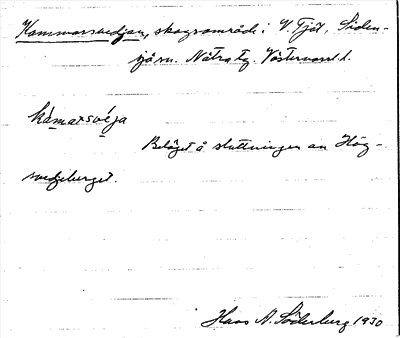 Kammarsvedjan, skogsområde i V. Fjöt, Siden-
sjö sn. Nätra tg. Västernorrl. l.
kámarsvéja
Beläget å sluttningen av Hög-
svedjeberget.
Hans A. Söderberg 1930